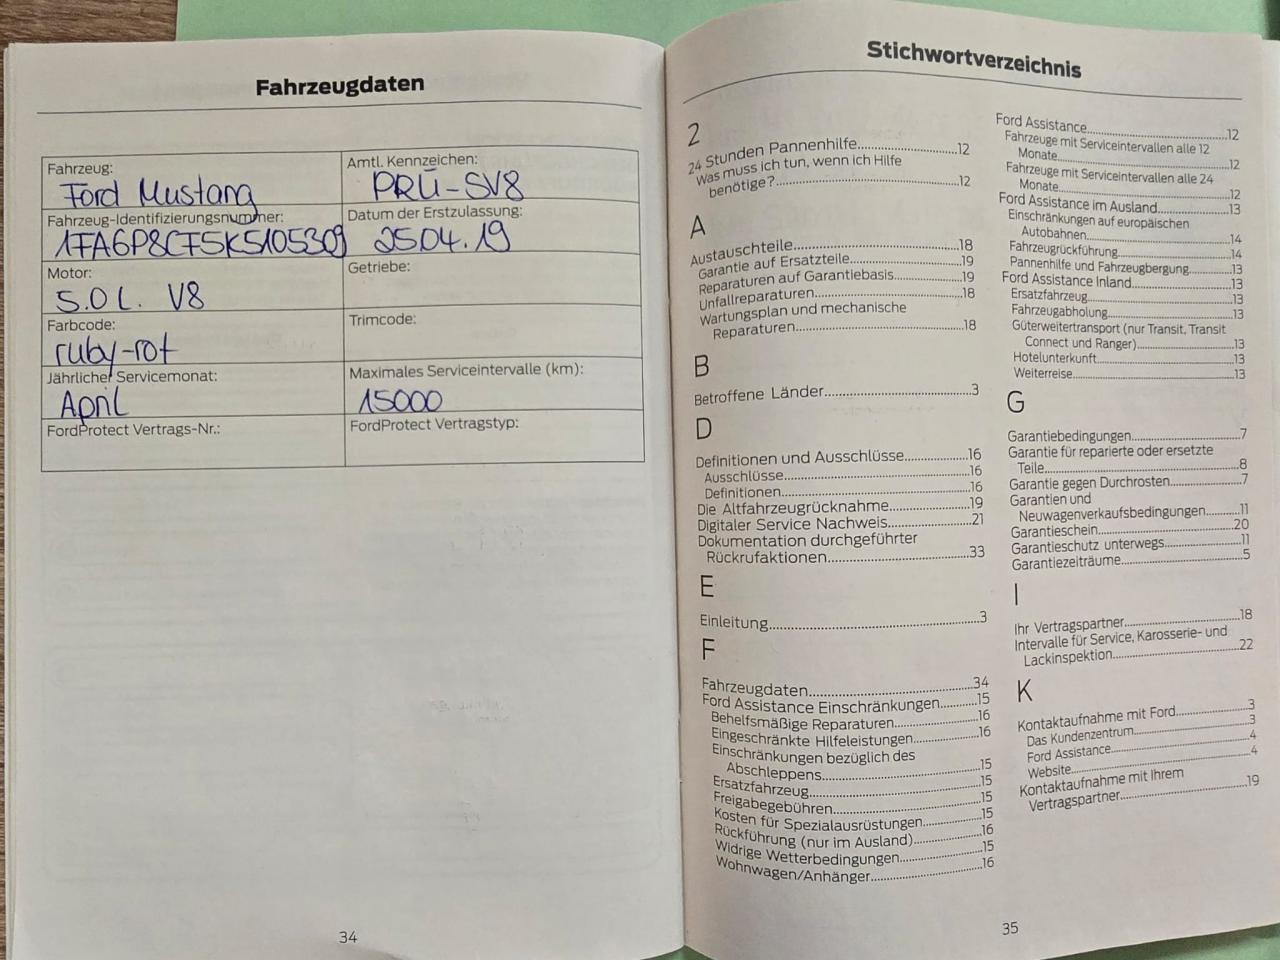 Fahrzeugdaten
Fahrzeug:
Ford Mustang
Amtl. Kennzeichen:
PRÜ-SV8
Fahrzeug-Identifizierungsnummer:
1FA6P8CF5K5105309
Datum der Erstzulassung:
25.04.19
Motor:
5.0 L. V8
Getriebe:
Farbcode:
ruby-rot
Trimcode:
Jährlicher Servicemonat:
April
Maximales Serviceintervalle (km):
15000
FordProtect Vertrags-Nr.:
FordProtect Vertragstyp:
34
Stichwortverzeichnis
2
24 Stunden Pannenhilfe...12
Was muss ich tun, wenn ich Hilfe
benötige?...12
A
Austauschteile...18
Garantie auf Ersatzteile...19
Reparaturen auf Garantiebasis...19
Unfallreparaturen...18
Wartungsplan und mechanische
Reparaturen...18
B
Betroffene Länder...3
D
Definitionen und Ausschlüsse...16
Ausschlüsse...16
Definitionen...16
Die Altfahrzeugrücknahme...19
Digitaler Service Nachweis...21
Dokumentation durchgeführter
Rückrufaktionen...33
E
Einleitung...3
F
Fahrzeugdaten...34
Ford Assistance Einschränkungen...15
Behelfsmäßige Reparaturen...16
Eingeschränkte Hilfeleistungen...16
Einschränkungen bezüglich des
Abschleppens...15
Ersatzfahrzeug...15
Freigabegebühren...15
Kosten für Spezialausrüstungen...15
Rückführung (nur im Ausland)...16
Widrige Wetterbedingungen...15
Wohnwagen/Anhänger...16
Ford Assistance...12
Fahrzeuge mit Serviceintervallen alle 12
Monate...12
Fahrzeuge mit Serviceintervallen alle 24
Monate...12
Ford Assistance im Ausland...13
Einschränkungen auf europäischen
Autobahnen...14
Fahrzeugrückführung...14
Pannenhilfe und Fahrzeugbergung...13
Ford Assistance Inland...13
Ersatzfahrzeug...13
Fahrzeugabholung...13
Güterweitertransport (nur Transit, Transit
Connect und Ranger)...13
Hotelunterkunft...13
Weiterreise...13
G
Garantiebedingungen...7
Garantie für reparierte oder ersetzte
Teile...8
Garantie gegen Durchrosten...7
Garantien und
Neuwagenverkaufsbedingungen...11
Garantieschein...20
Garantieschutz unterwegs...11
Garantiezeiträume...5
I
Ihr Vertragspartner...18
Intervalle für Service, Karosserie- und
Lackinspektion...22
K
Kontaktaufnahme mit Ford...3
Das Kundenzentrum...3
Ford Assistance...4
Website...4
Kontaktaufnahme mit Ihrem
Vertragspartner...19
35